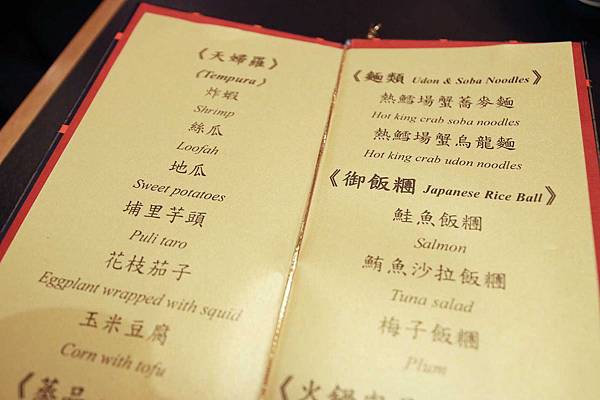 《天婦羅》
(Tempura)
炸蝦
Shrimp
絲瓜
Loofah
地瓜
Sweet potatoes
埔里芋頭
Puli taro
花枝茄子
Eggplant wrapped with squid
玉米豆腐
Corn with tofu
《蒸品
《麵類 Udon & Soba Noodles》
熱鱈場蟹蕎麥麵
Hot king crab soba noodles
熱鱈場蟹烏龍麵
Hot king crab udon noodles
《御飯糰 Japanese Rice Ball》
鮭魚飯糰
Salmon
鮪魚沙拉飯糰
Tuna salad
梅子飯糰
Plum
《火鍋